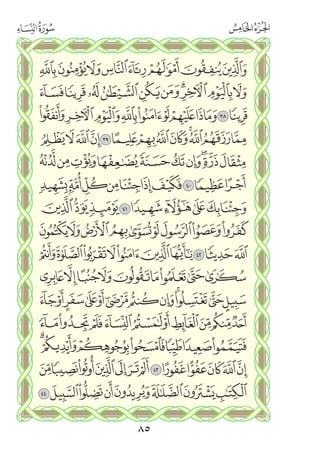 الجُزْءُ الخَامِسُ سُورَةُ النِّسَاءِ
وَالَّذِينَ يُنفِقُونَ أَمْوَالَهُمْ رِئَاءَ النَّاسِ وَلَا يُؤْمِنُونَ بِاللَّهِ
وَلَا بِالْيَوْمِ الْآخِرِ وَمَن يَكُنِ الشَّيْطَانُ لَهُ قَرِينًا فَسَاءَ
قَرِينًا ٣٨ وَمَاذَا عَلَيْهِمْ لَوْ آمَنُوا بِاللَّهِ وَالْيَوْمِ الْآخِرِ وَأَنفَقُوا
مِمَّا رَزَقَهُمُ اللَّهُ وَكَانَ اللَّهُ بِهِمْ عَلِيمًا ٣٩ إِنَّ اللَّهَ لَا يَظْلِمُ
مِثْقَالَ ذَرَّةٍ وَإِن تَكُ حَسَنَةً يُضَاعِفْهَا وَيُؤْتِ مِن لَّدُنْهُ
أَجْرًا عَظِيمًا ٤٠ فَكَيْفَ إِذَا جِئْنَا مِن كُلِّ أُمَّةٍ بِشَهِيدٍ
وَجِئْنَا بِكَ عَلَىٰ هَٰؤُلَاءِ شَهِيدًا ٤١ يَوْمَئِذٍ يَوَدُّ الَّذِينَ
كَفَرُوا وَعَصَوُا الرَّسُولَ لَوْ تُسَوَّىٰ بِهِمُ الْأَرْضُ وَلَا يَكْتُمُونَ
اللَّهَ حَدِيثًا ٤٢ يَا أَيُّهَا الَّذِينَ آمَنُوا لَا تَقْرَبُوا الصَّلَاةَ وَأَنتُمْ
سُكَارَىٰ حَتَّىٰ تَعْلَمُوا مَا تَقُولُونَ وَلَا جُنُبًا إِلَّا عَابِرِي
سَبِيلٍ حَتَّىٰ تَغْتَسِلُوا وَإِن كُنتُم مَّرْضَىٰ أَوْ عَلَىٰ سَفَرٍ أَوْ جَاءَ
أَحَدٌ مِّنكُم مِّنَ الْغَائِطِ أَوْ لَامَسْتُمُ النِّسَاءَ فَلَمْ تَجِدُوا مَاءً
فَتَيَمَّمُوا صَعِيدًا طَيِّبًا فَامْسَحُوا بِوُجُوهِكُمْ وَأَيْدِيكُمْ
إِنَّ اللَّهَ كَانَ عَفُوًّا غَفُورًا ٤٣ أَلَمْ تَرَ إِلَى الَّذِينَ أُوتُوا نَصِيبًا مِّنَ
الْكِتَابِ يَشْتَرُونَ الضَّلَالَةَ وَيُرِيدُونَ أَن تَضِلُّوا السَّبِيلَ ٤٤
٨٥